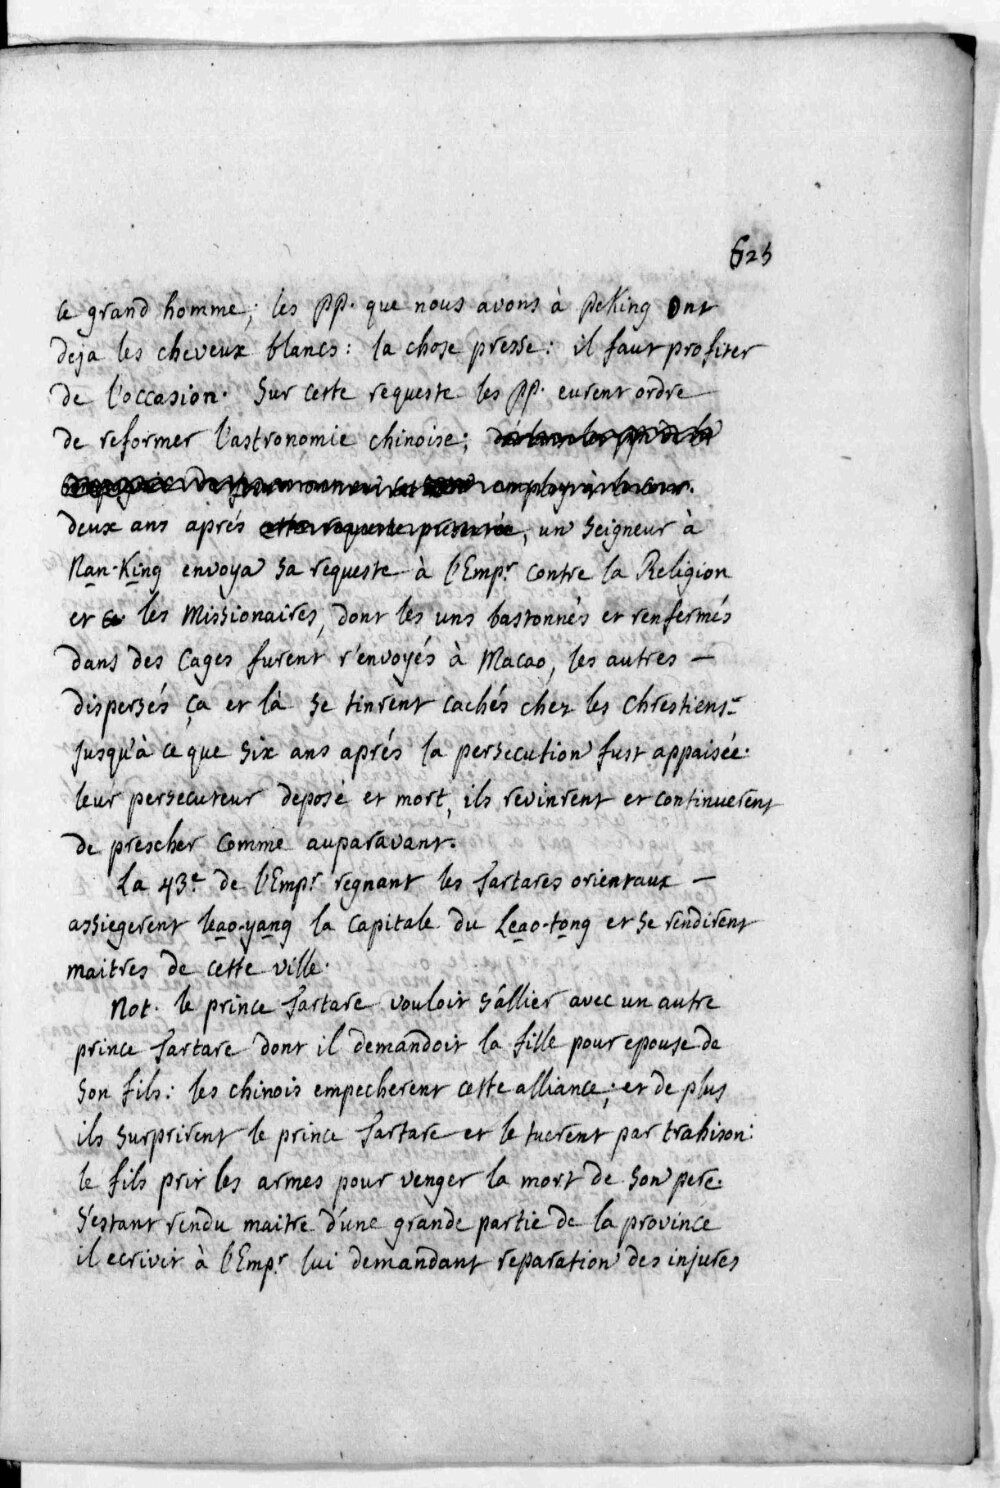 623
le grand homme; les PP. que nous avons à Peking ont
deja les cheveux blancs: la chose presse: il faut profiter
de l'occasion. Sur cette requeste les PP. eurent ordre
de reformer l'astronomie chinoise;
deux ans aprés cette requeste presentée, un Seigneur à
Nan-King envoya sa requeste à l'Empr contre la Religion
et les Missionaires, dont les uns bastonnés et renfermés
dans des Cages furent r'envoyés à Macao, les autres —
dispersés ça et là se tinrent cachés chez les Chrestiens-
jusqu'à ce que six ans aprés la persecution fust appaisée.
leur persecuteur deposé et mort, ils revinrent et continuerent
de prescher comme auparavant.
La 43e de l'Empr regnant les Tartares orientaux —
assiegerent leao-yang la capitale du Leao-tong et se rendirent
maitres de cette ville.
Not. le prince Tartare vouloit s'allier avec un autre
prince Tartare dont il demandoit la fille pour epouse de
son fils: les chinois empecherent cette alliance; et de plus
ils surprirent le prince Tartare et le tuerent par trahison:
le fils prit les armes pour venger la mort de son pere.
S'estant rendu maitre d'une grande partie de la province
il ecrivit à l'Empr lui demandant reparation des injures